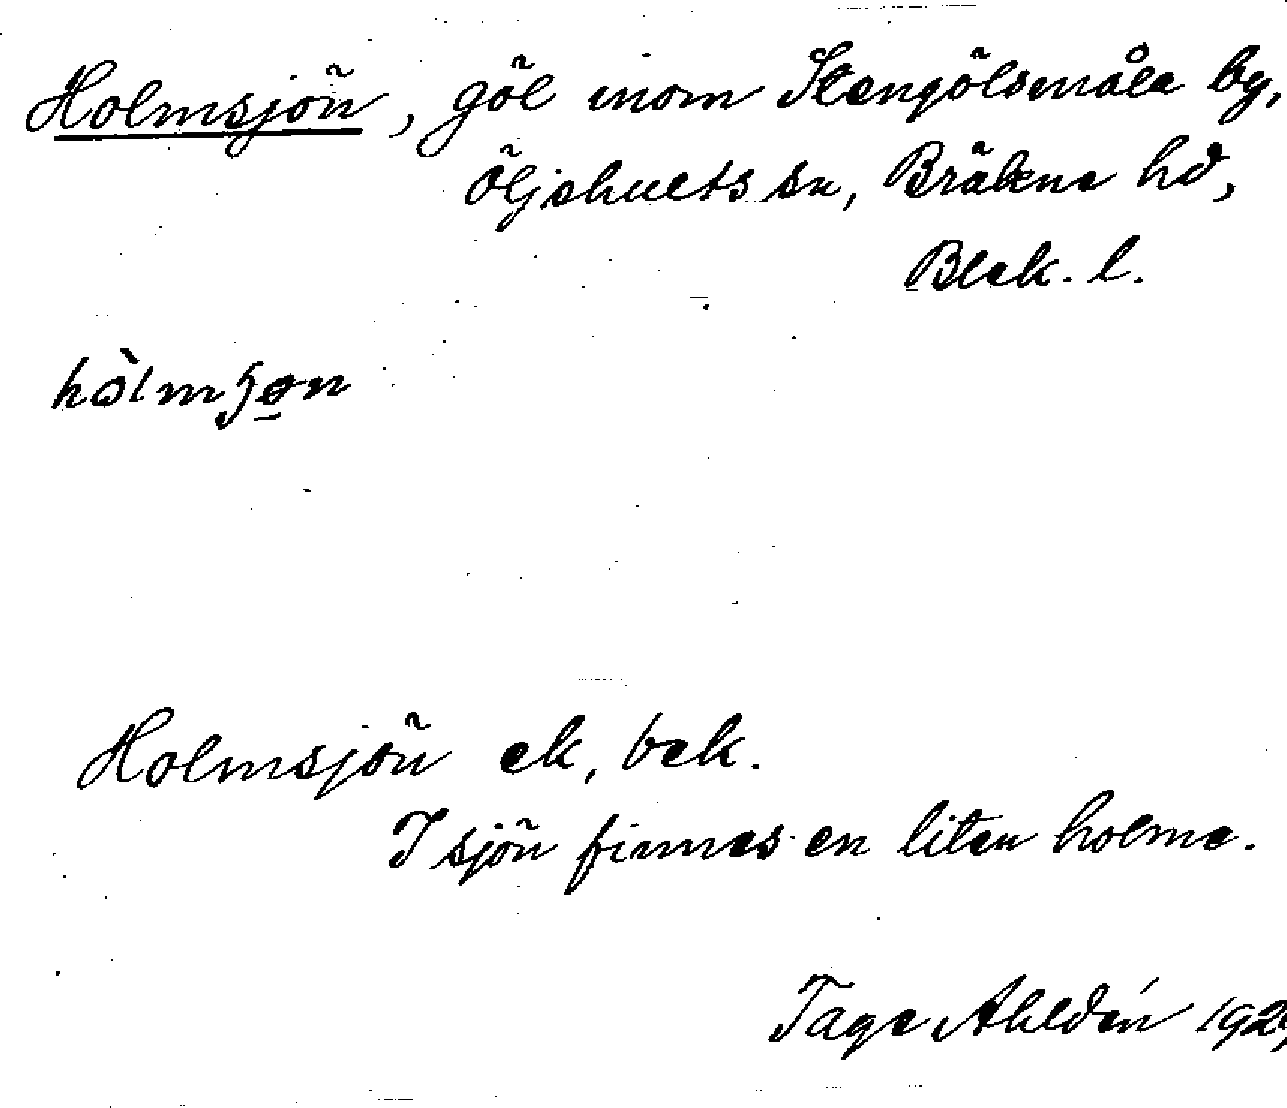 Holmsjön, göl inom Stengölsmåla by,
Öljehults sn, Bräkne hd,
Blek. l.
hòlmʃøn
Holmsjön ek, bek.
I sjön finnes en liten holme.
Tage Ahldén